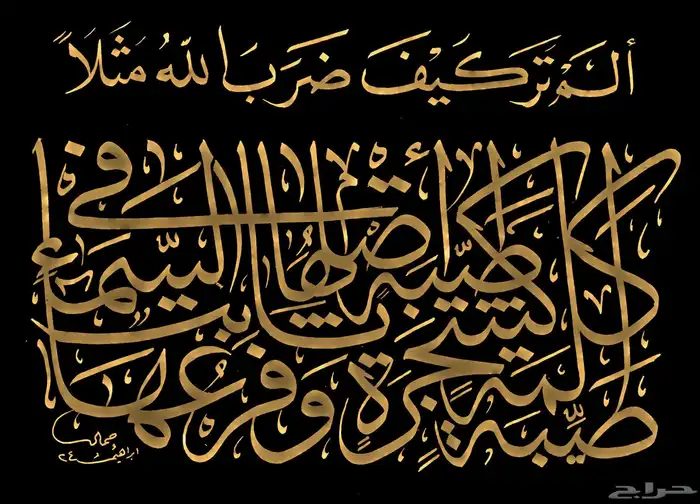 ألم تر كيف ضرب الله مثلاً
كلمة طيبة كشجرة طيبة أصلها ثابت وفرعها في السماء
جمال
ابراهيم ٢٤
حراج